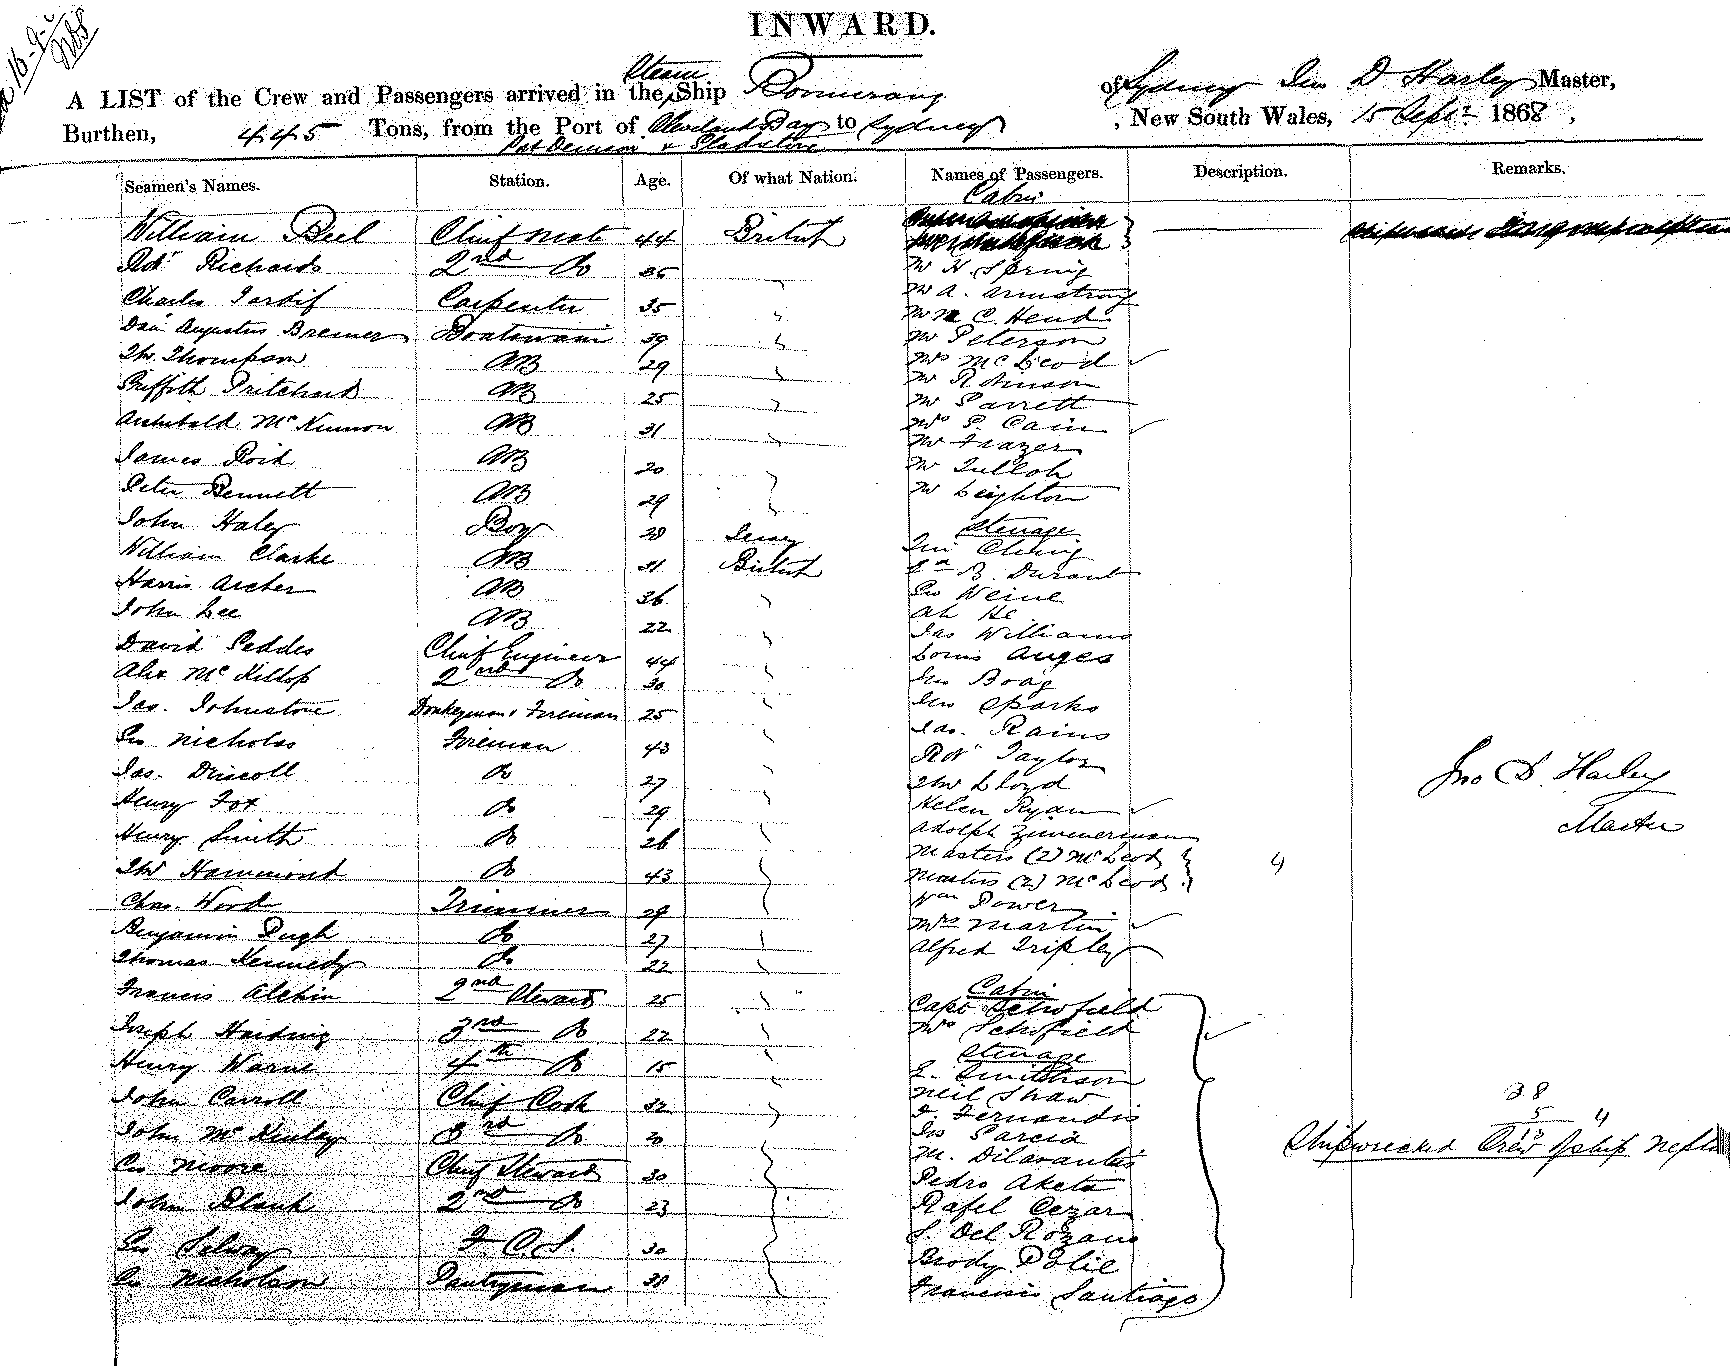 INWARD.
A LIST of the Crew and Passengers arrived in the Steam Ship Boomerang of Sydney Jno D Harley Master,
Burthen, 445 Tons, from the Port of Cleveland Bay to Sydney, New South Wales, 15 Sept 1868,
Seamen's Names. Station. Age. Of what Nation. Names of Passengers. Description. Remarks.
Cabin
William Bell Chief Mate 44 British
Robt Richards 2nd Do 36 Mr H. Spring
Charles Tardif Carpenter 35 Mr A. Armstrong
Mr C. Head
Augustus Bremer Boatswain 39 Mr Peterson
Thos. Thompson AB 29 Mrs McLeod
Mr Robinson
Griffith Pritchard AB 25 Mr Parrett
Archibald McKinnon AB 31 Mrs P. Cain
Mr Frazer
James Reid AB 20 Mr Tulloh
Peter Bennett AB 29 Mr Leighton
John Haley Boy Jersey Steerage
William Clarke AB 31 British
B. Durant
Harris Archer AB 36 Weine
John Lee AB 22 Ah He
Jas Williams
David Geddes Chief Engineer 44 Louis Auges
Alex McKillop 2nd Do 30 Jno Boag
Jas. Johnstone Donkeyman & Fireman 25 Jno Sparks
Jas. Rains
Geo Nicholas Fireman 43 Robt Taylor
Jas. Driscoll Do 27 Thos Lloyd
Henry Fox Do 29 Helen Ryan
Henry Smith Do 26 Adolph Zimmerman
Masters (2) McLeod
Thos Hammond Do 43 Masters (2) McLeod 4
Chas. Wood Trimmer 29 Wm Power
Benjamin Pugh Do 27 Mrs Martin
Thomas Kennedy Do 22 Alfred Tripley
Francis Alchin 2nd Steward 25 Cabin
Capt Schofield
Joseph Harding 3rd Do 22 Mrs Schofield
Henry Warne 4th Do 15 Steerage
Smithson
John Carroll Chief Cook 32 Neil Shaw
F. Fernandis
John McKinley 3rd Do 20 Jos Garcia
Geo Moore Chief Steward 30 M. Dilavantis
Pedro Aketa
John Blank 2nd Do 23 Rafel Cezar
Geo Selway F.C.S. 30 S. Del Rozario
Brody Polie
Geo Nicholson Pantryman 38 Francisis Santiago
Jno D. Harley
Master
38
5 4
Shipwrecked Crew of ship